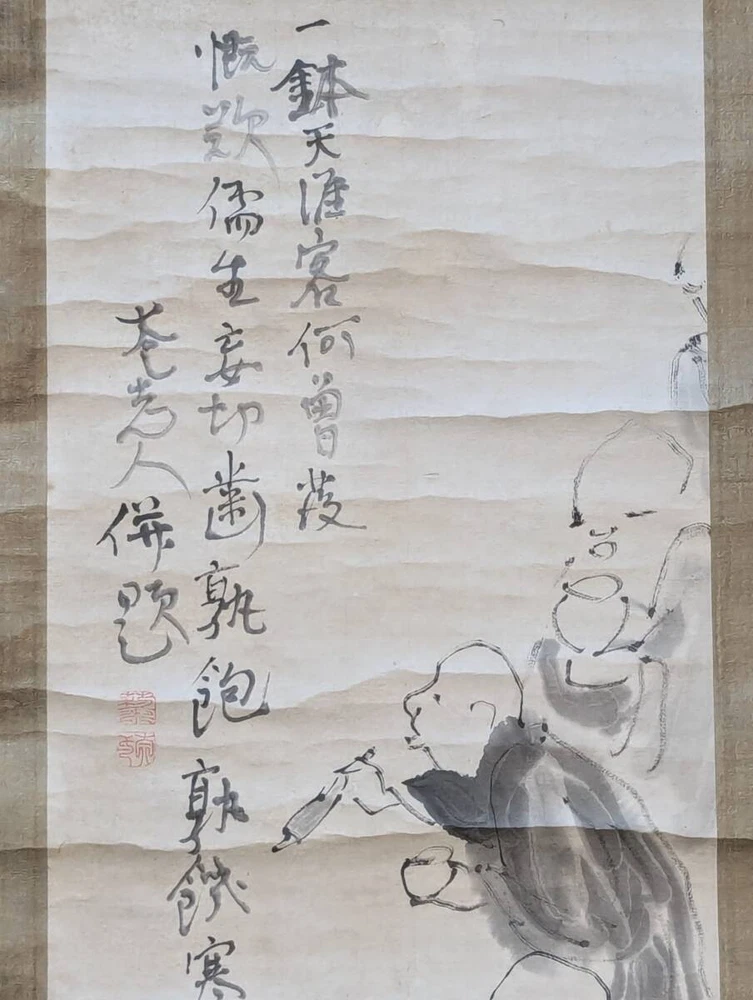 一鉢天涯客何曾發
慨歎儒生妄切齒孰飽孰饑寒
老人併題